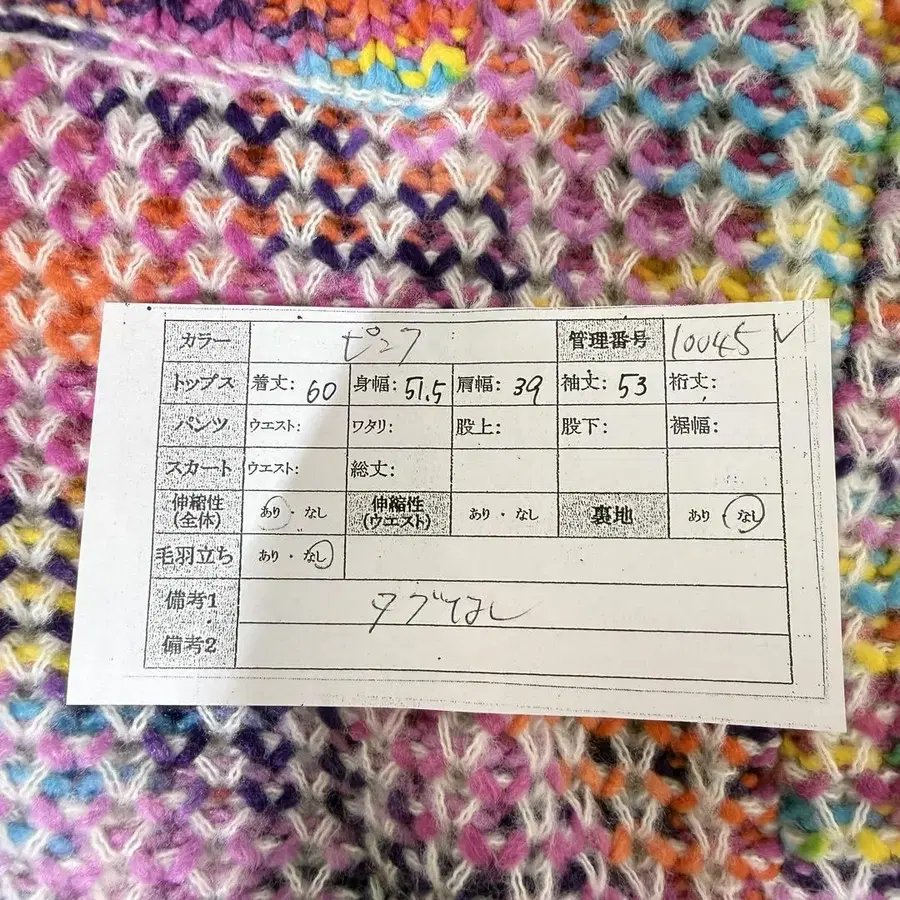 カラー ピンク 管理番号 10045
トップス 着丈: 60 身幅: 51.5 肩幅: 39 袖丈: 53 裄丈:
パンツ ウエスト: ワタリ: 股上: 股下: 裾幅:
スカート ウエスト: 総丈:
伸縮性(全体) あり・なし 伸縮性(ウエスト) あり・なし 裏地 あり・なし
毛羽立ち あり・なし
備考1 タグなし
備考2